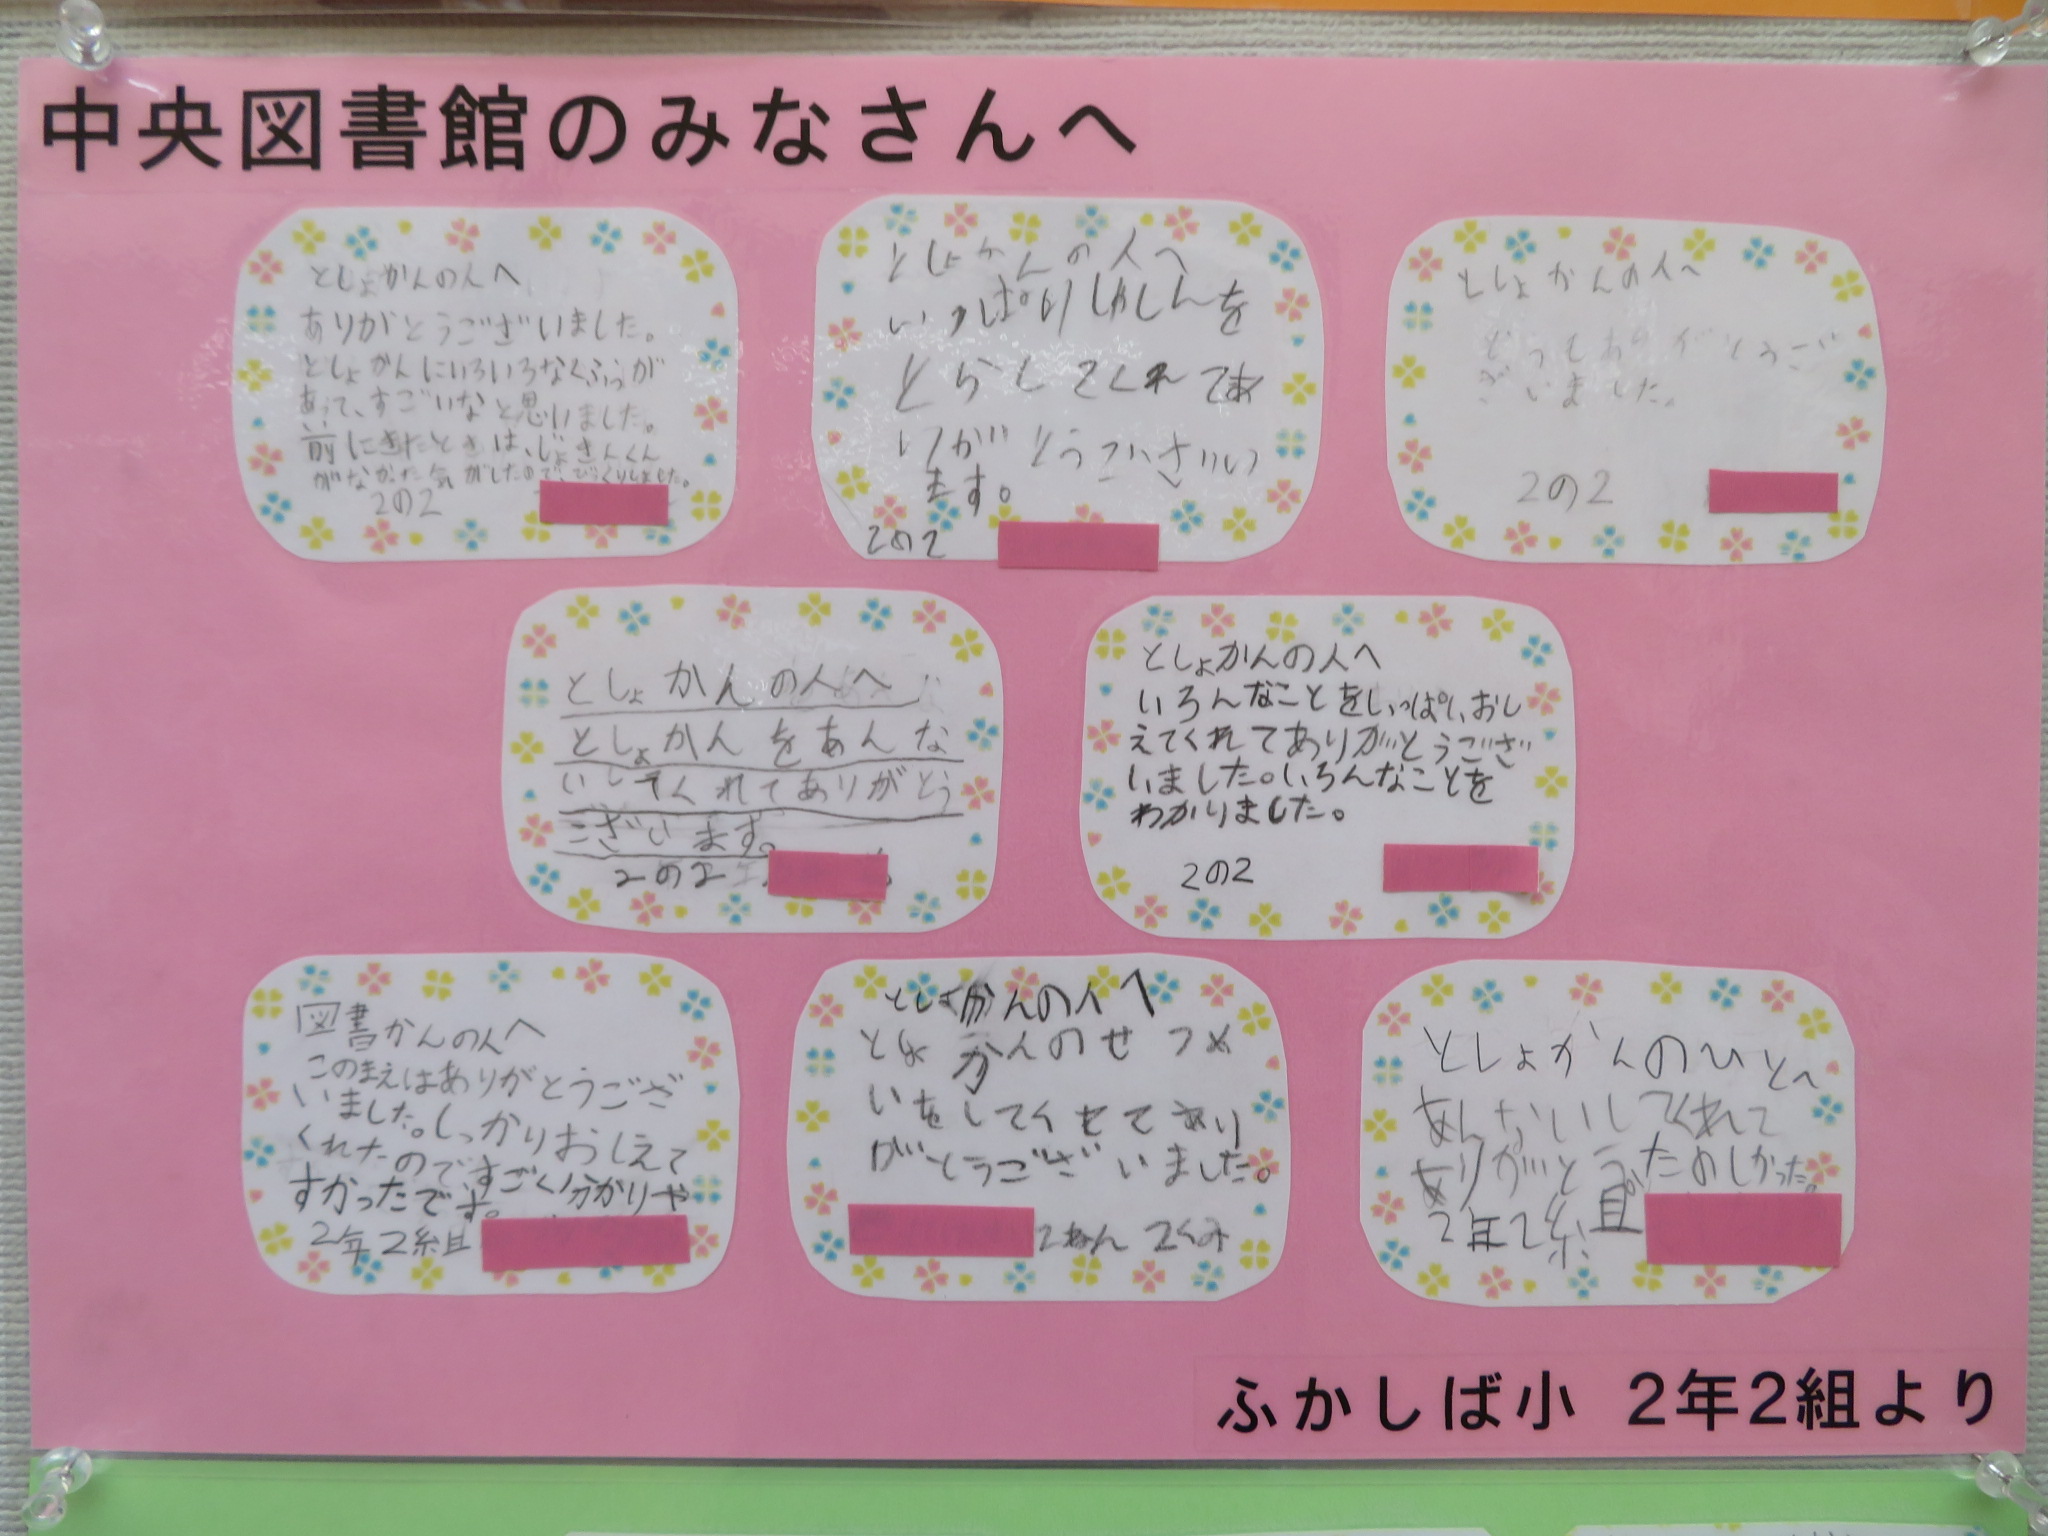 中央図書館のみなさんへ
としょかんの人へ
ありがとうございました。
としょかんにいろいろなくふうが
あって、すごいなと思いました。
前にきたときは、じょきんくん
がなかった気がしたので、びっくりしました。
2の2
としょかんの人へ
いっぱいしゃしんを
とらしてくれてあ
りがとうございい
ます。
2の2
としょかんの人へ
どうもありがとうご
ざいました。
2の2
としょかんの人へ
としょかんをあんな
いしてくれてありがとう
ございます。
2の2
としょかんの人へ
いろんなことをいっぱいおし
えてくれてありがとうござ
いました。いろんなことを
わかりました。
2の2
図書かんの人へ
このまえはありがとうござ
いました。しっかりおしえて
くれたのですごく分かりや
すかったです。
2年2組
としょかんの人へ
としょかんのせつめ
いをしてくせてあり
がとうございました。
2ねん2くみ
としょかんのひとへ
あんないしてくれて
ありがとう。たのしかった。
2年2組
ふかしば小 2年2組より